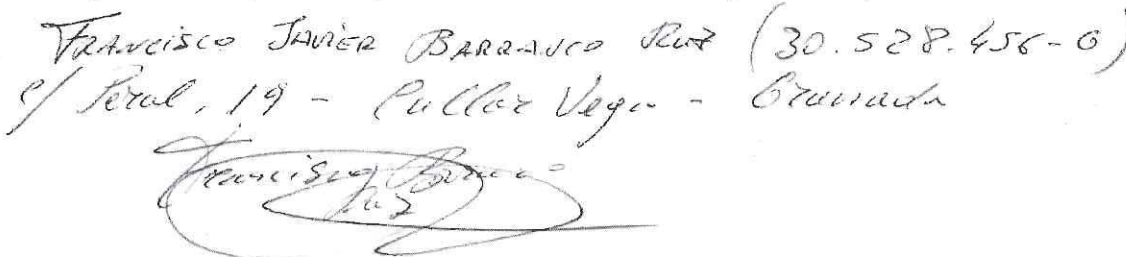 FRANCISCO JAVIER BARRANCO RUZ (30.528.456-G)
c/ Peral, 19 - Cullar Vega - Granada
Francisco Barranco
Ruz